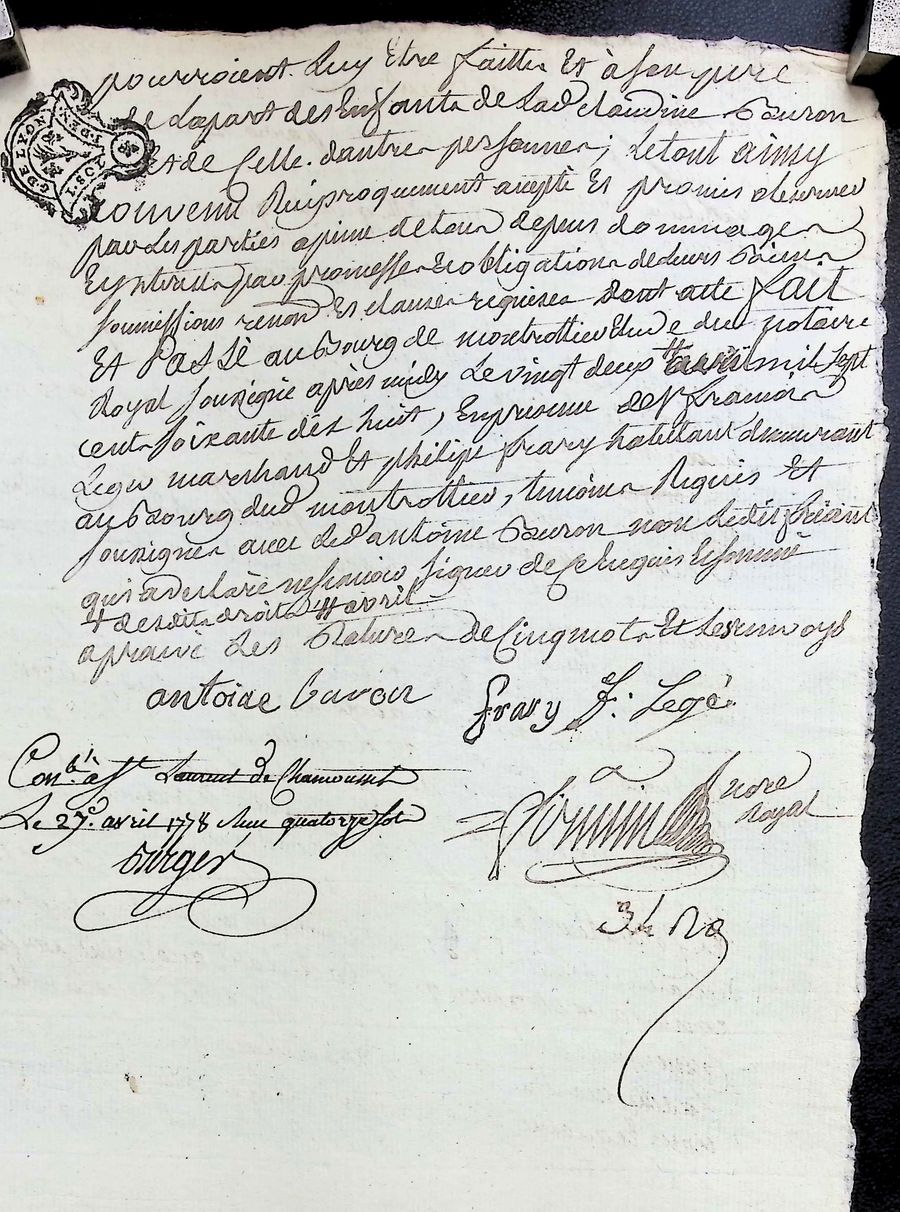 pourroient luy etre faitte Et à son pere
de la part des Enfants de lad claudine Bavron
Et de Celle d'autre personnes; Le tout ainsy
convenu Reciproquement acepté Et promis observer
par Les parties a peine de tous depens dommages
Et promesse Et obligation de Leurs Biens
soumissions renon Et clauses requises dont acte fait
Et Passé au bourg de montrottier Etude du notaire
Royal soussigné après midy Le vingt deux avril mil sept
cents soixante dix huit, En presence de sr francois
Leger marchand Et philipe frary habitant demeurant
au bourg dud montrottier, temoins Requis Et
soussignes avec led antoine Bavron non Ledit
qui a declaré ne scavoir signer de Ce Requis Et sommé
+ desdits droits ++ avril
aprouvé les Ratures de Cinq mots Et Les renvoys
antoine bavron
frary F: Legé
Conlé à St Laurent de Chamousset
Le 27e avril 1778 Reçu quatorze sols
notre
Royal
G DE LYON